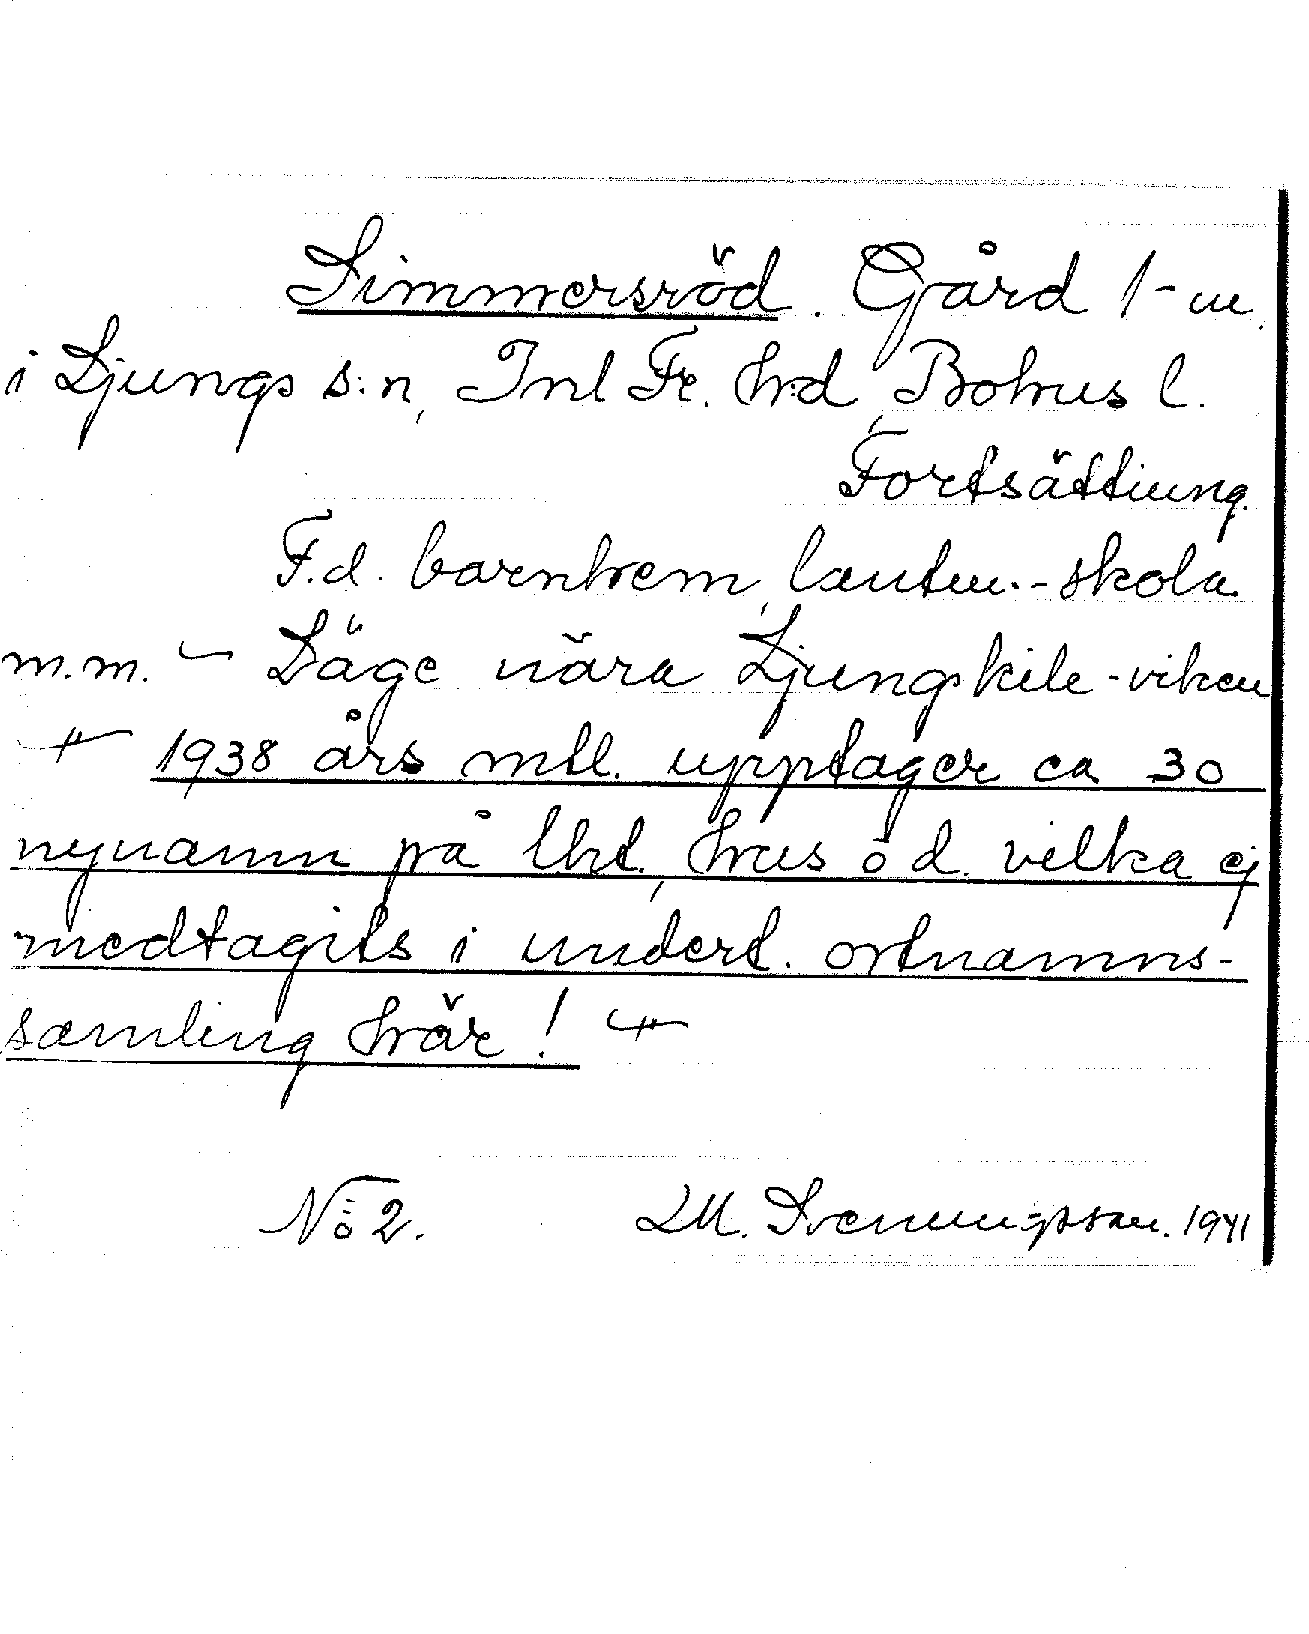 Simmersröd. Gård 1-m.
i Ljungs s:n, Inl Fr. hrd, Bohus l.
Fortsättning.
F.d. barnhem, lantm.-skola
m.m. - Läge nära Ljungskile-viken
- 1938 års mtl. upptager ca 30
nynamn på lht., hus o d. vilka ej
medtagits i undert. ortnamns-
samling här! -
No 2. LM. Svenungsson. 1941